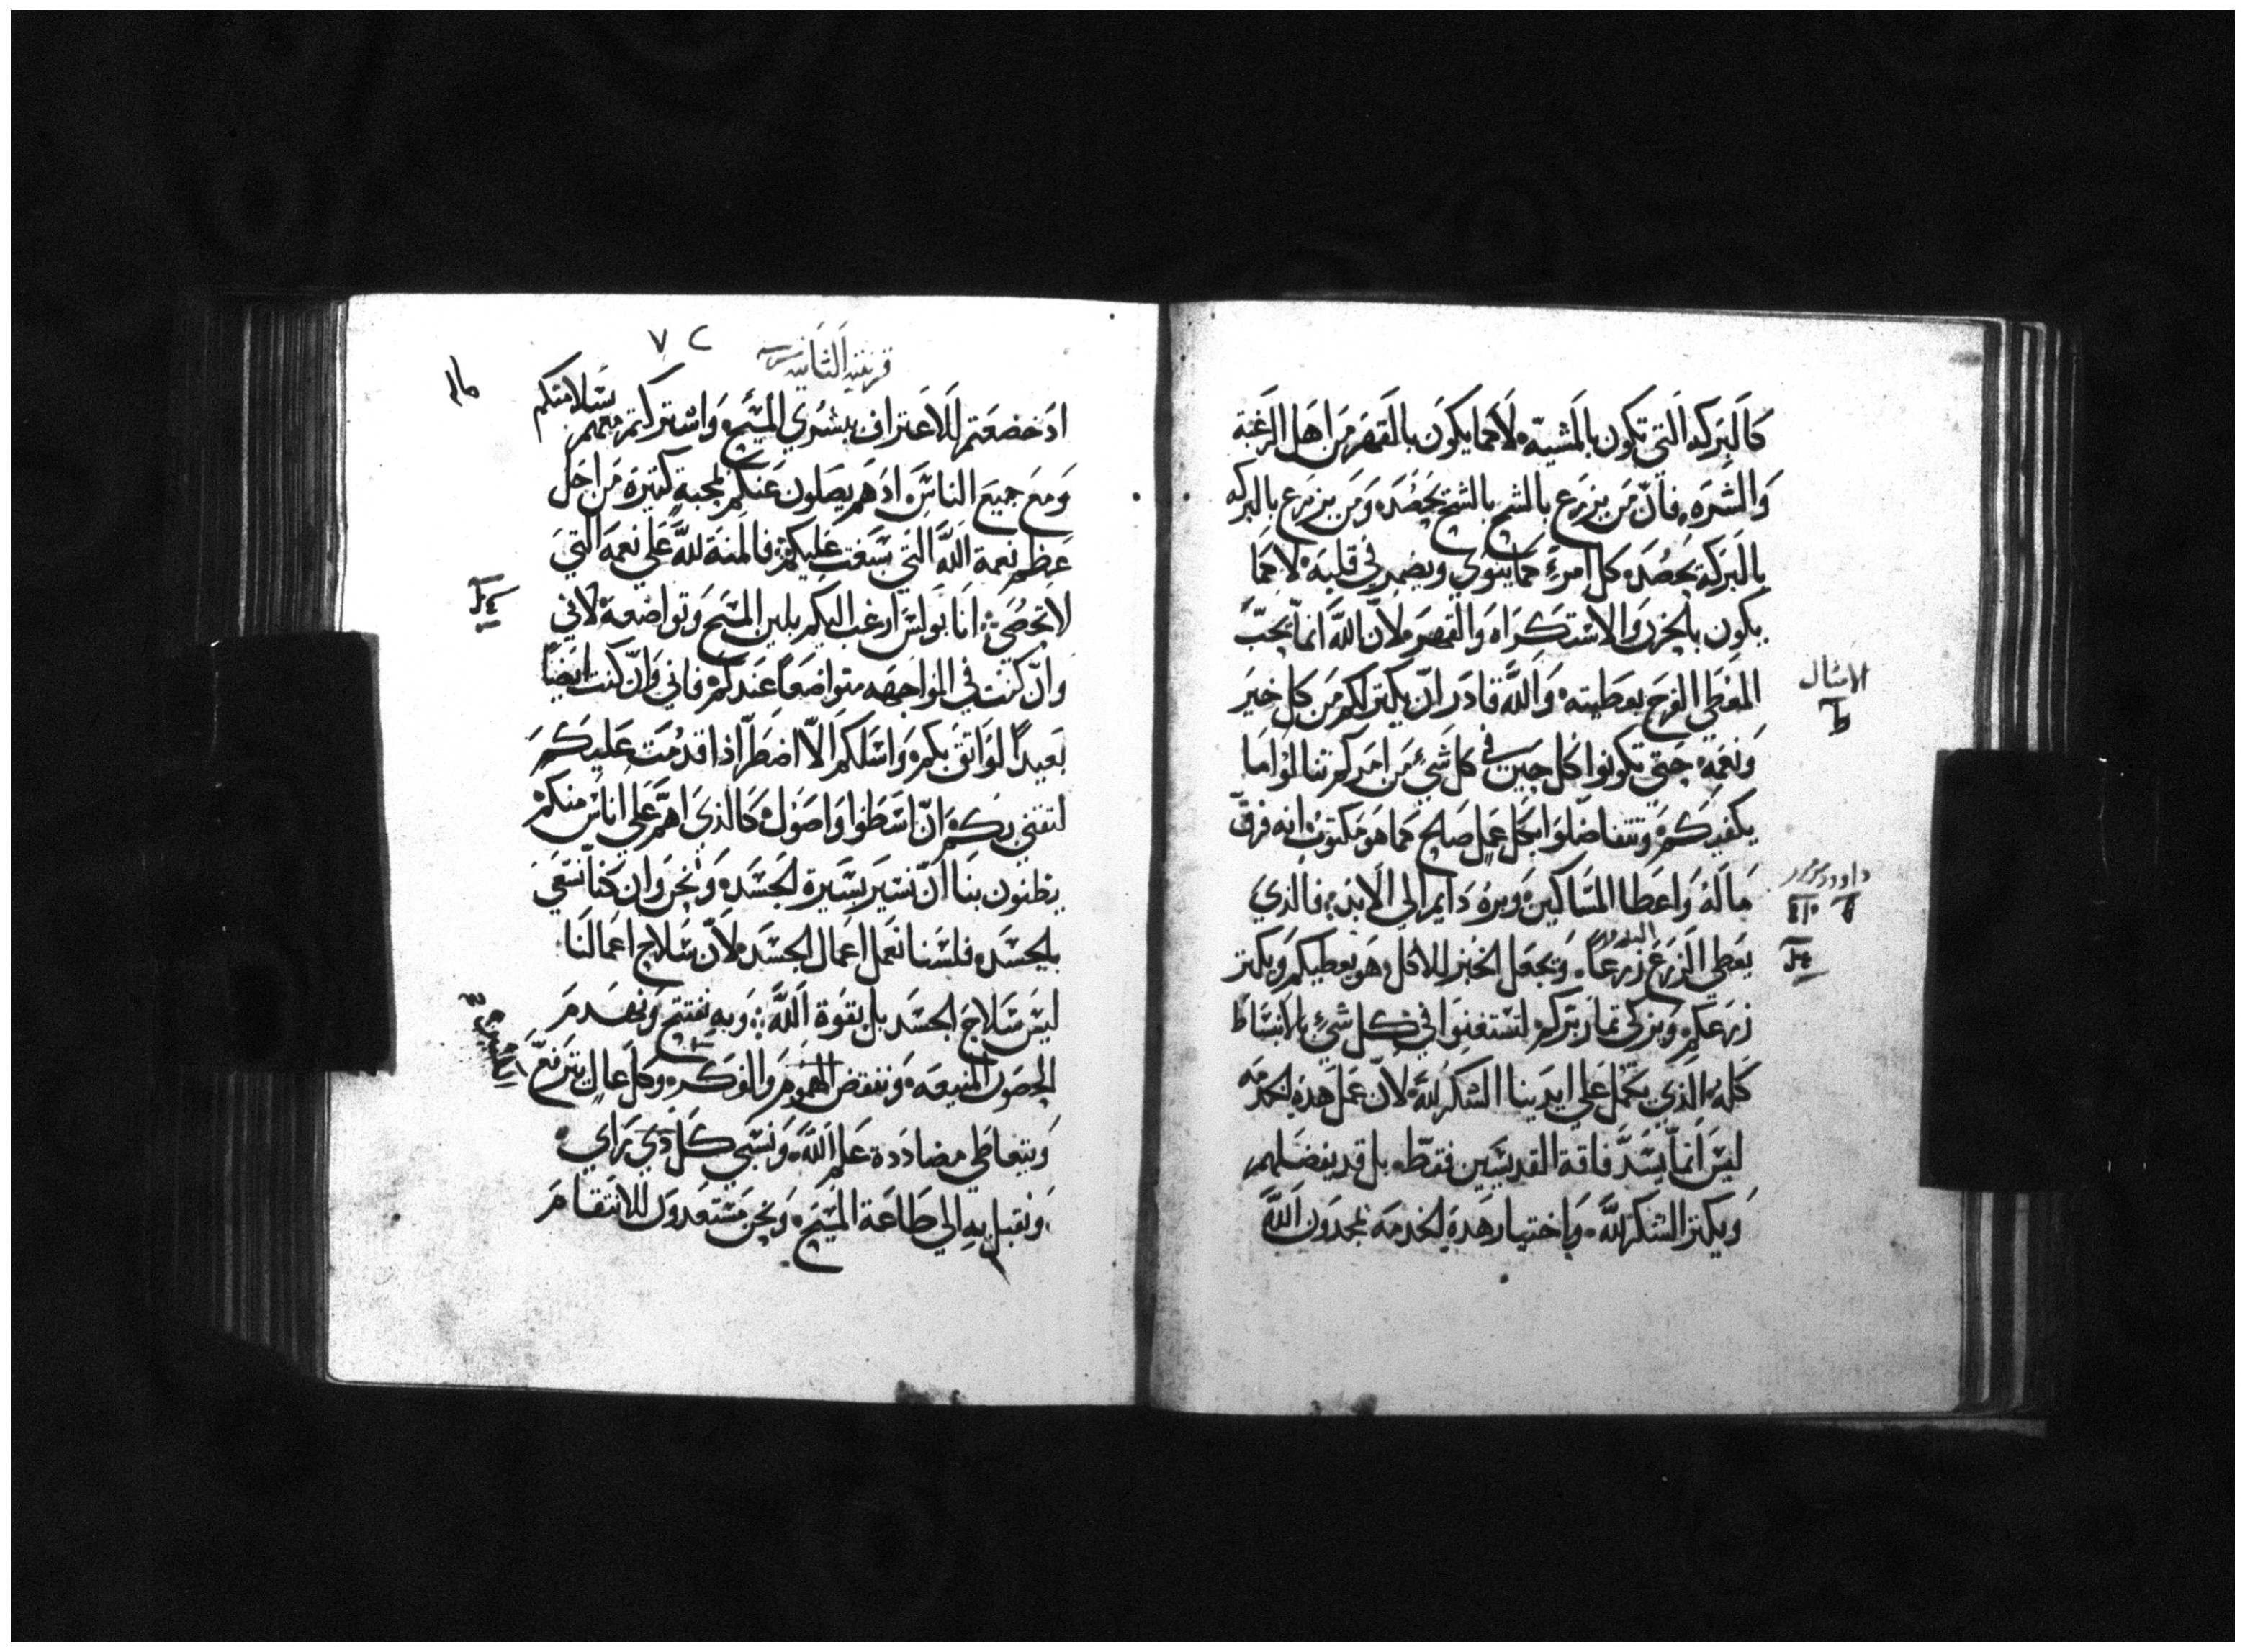 كالبركه التي تكون بالمشيه لا كما يكون بالقهر من اهل الرغبة
والشره فان من يزرع بالشح بالشح يحصد ومن يزرع بالبركه
بالبركة يحصد كل امرء كما ينوي ويضمر في قلبه لا كما
يكون بالحزن والاستكراه والقهر لان الله انما يحب
المعطي الفرح بعطيته والله قادر ان يكتر لكم من كل خير
ونعمه حتي تكونوا كل حين في كل شيء من امركم تنالوا ما
يكفيكم وتتفاضلوا بكل عمل صالح كما هو مكتوب انه فرق
ماله واعطا المساكين وبره دايم الي الابد فالذي
يعطي الزرع زرعا ويجعل الخبز للاكل هو يعطيكم ويكتر
زرعكم ويزكي تمار بركم لتستغنوا في كل شيء بالانبساط
كله الذي يكمل علي ايدينا الشكر لله لان عمل هده الخدمه
ليس انما يسد فاقة القديسين فقط بل قد يفضلهم
ويكتر الشكر لله وباختيار هده الخدمه يمجدون الله
الامثال
ط
داوود مزمور
قرنتيه الثانيه
٧٢
اد خضعتم للاعتراف ببشري المسيح واشتراكتم معهم بسلامتكم
ومع جميع الناس اد هم يصلون عنكم لمحبة كتيرة من اجل
عظم نعمة الله التي سبغت عليكم فالمنة لله علي نعمه التي
لا تحصي انا بولس ارغب اليكم بلين المسيح وتواضعه لاني
وان كنت في المواجهه متواضعا عندكم فاني وان كنت ايضا
بعيدا لواتق بكم واسلكم الا اضطر اذا قدمت عليكم
لتقتي بكم ان اسطوا واصول كالذي اهم علي اناس منكم
يظنون بنا ان نسير بسيرة الجسد ونحن وان كنا نسعي
بالجسد فلسنا نعمل اعمال الجسد لان سلاح اعمالنا
ليس سلاح الجسد بل بقوة الله وبه نفتتح ونهدم
الحصون المنيعه وننقض الهموم والفكر وكل عال يترفع
ويتعاطي مضاددة علم الله ونسبي كل دي راي
ونقبل به الي طاعة المسيح ونحن مستعدون للانتقام